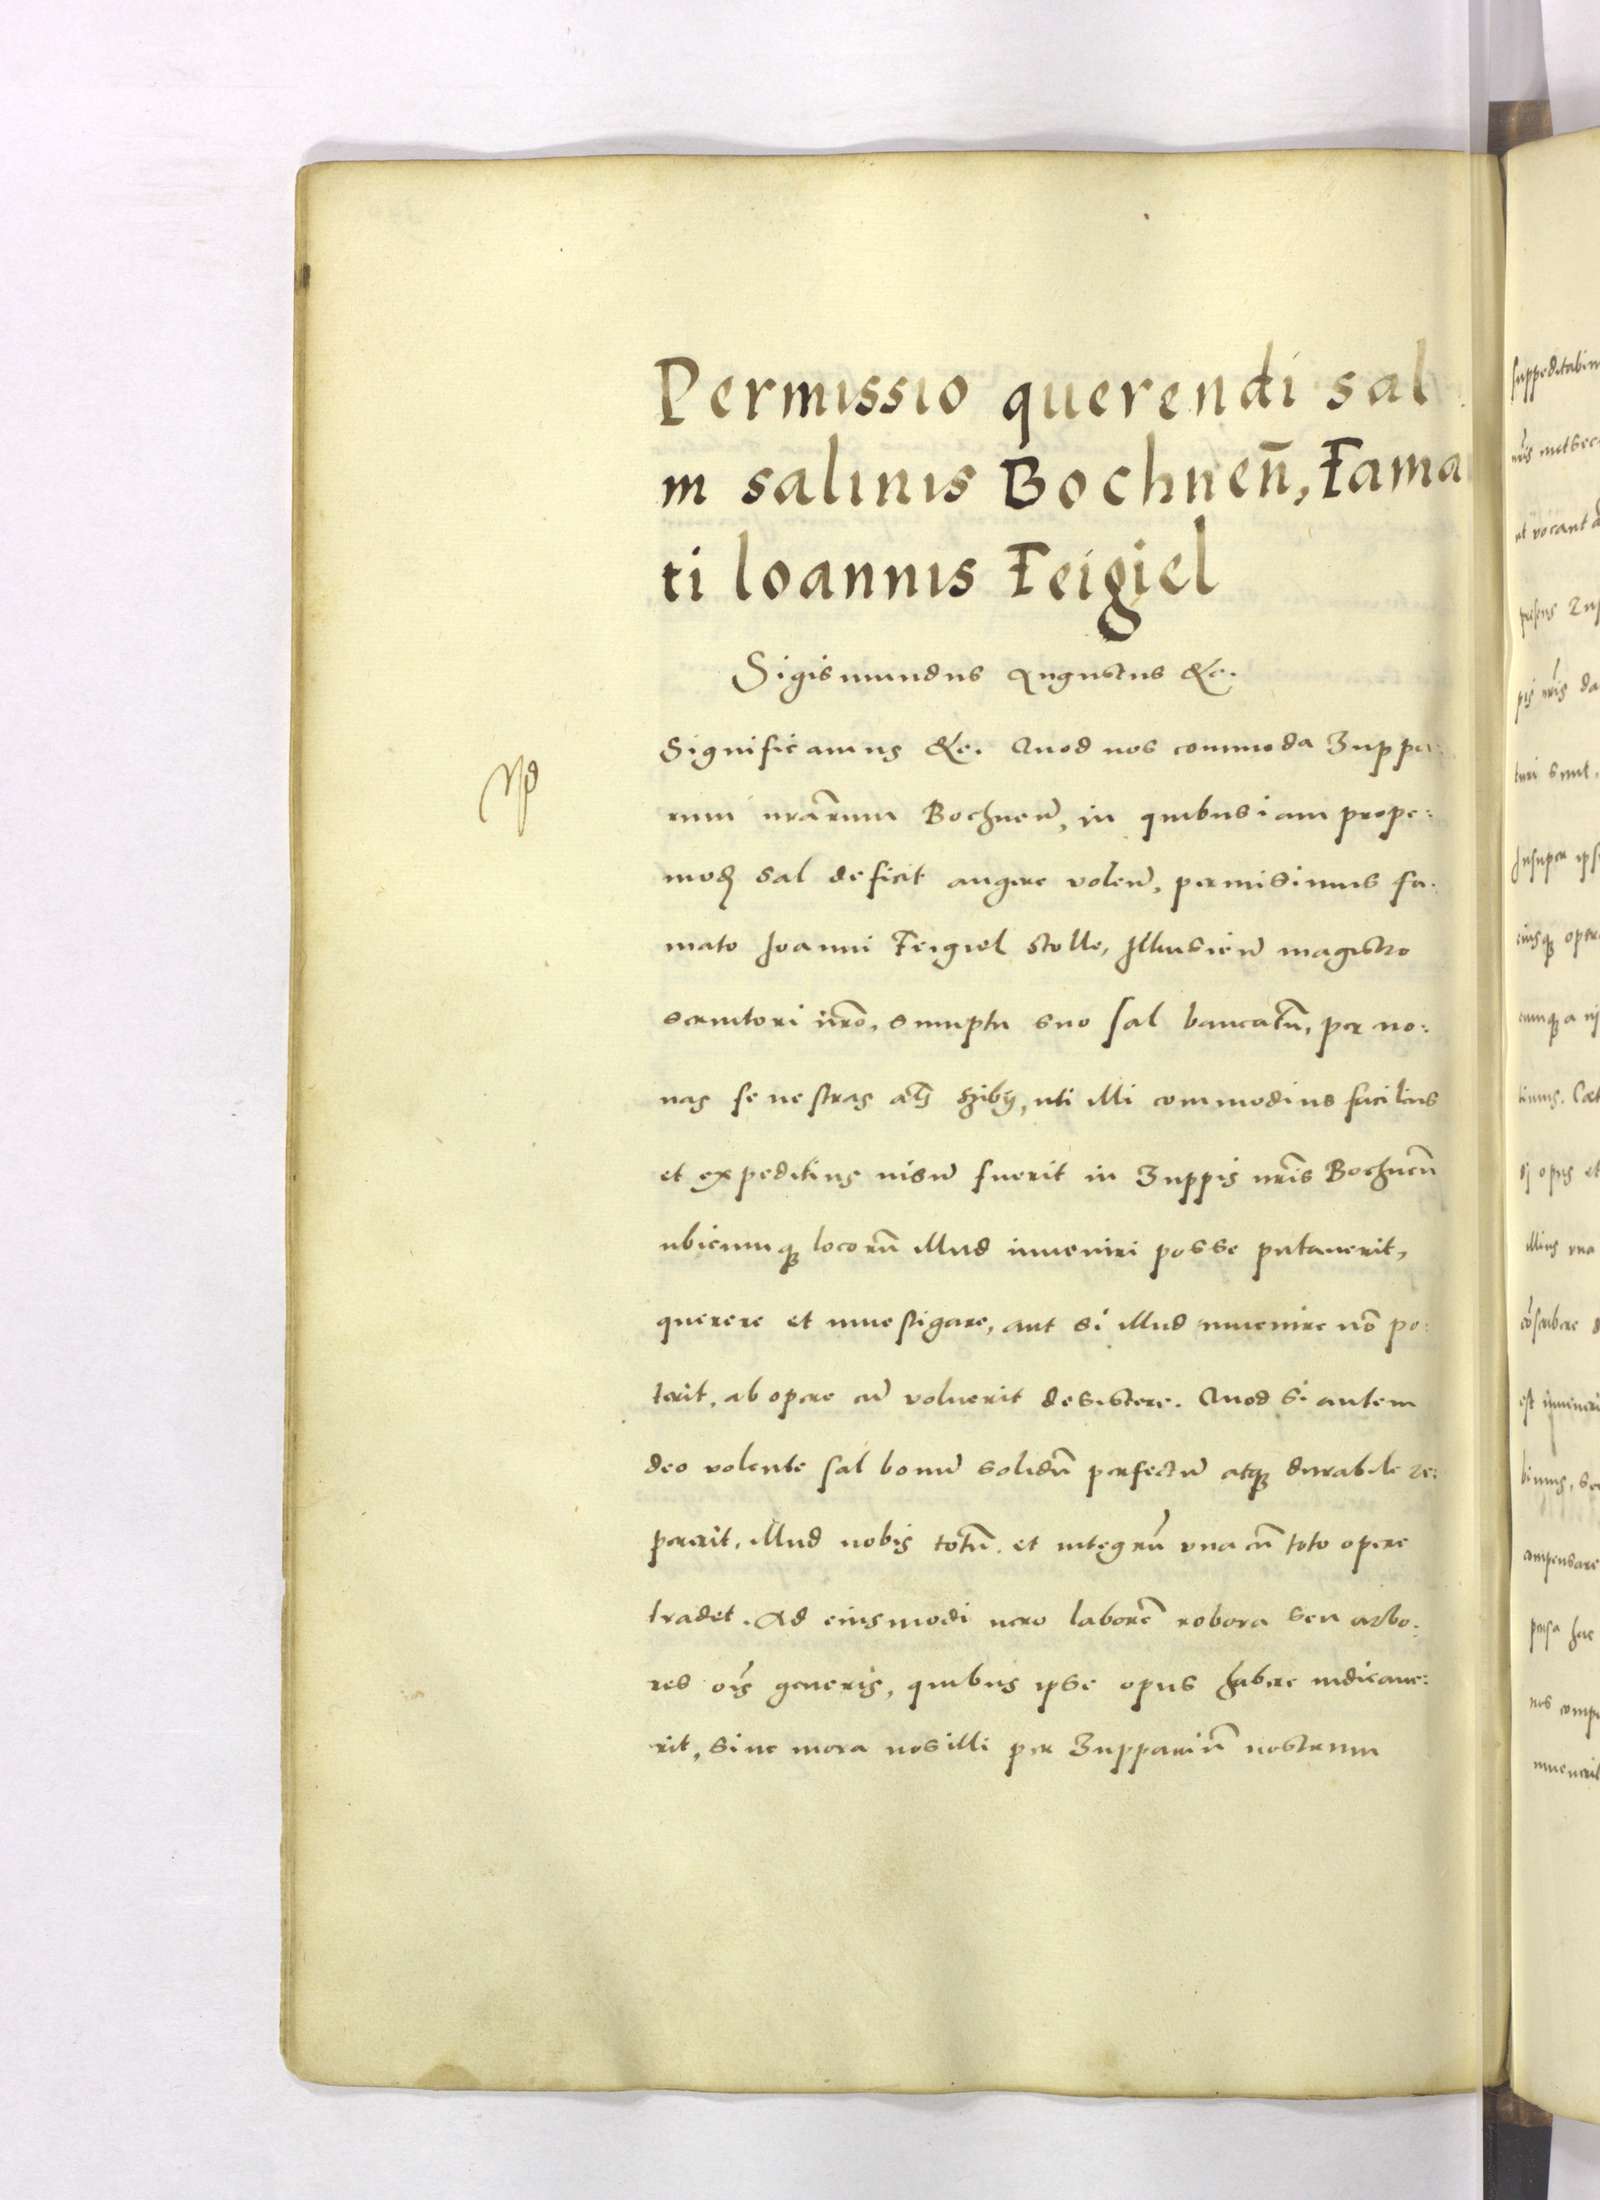 Permissio querendi sal
in salinis Bochnen̄, Fama
ti Ioannis Feigiel
Sigismundus Augustus &c.
Significamus &c. Quod nos commoda Zuppa:
rum nrarum Bochnen̄, in quibus iam prope:
mod sal deficit augere volen̄, permisimus fa:
mato Joanni Feigiel Stolle, Illkusien̄ magistro
scrutori nro, sumptu suo sal bancatū, per no:
nas fenestras als szibÿ, uti illi commodius facilius
et expeditius visū fuerit in Zuppis nris Bochnen̄
ubicunqꝫ locorū illud inveniri posse putaverit,
querere et investigare, aut si illud invenire nō po:
terit, ab opere cū voluerit desistere. Quod si autem
deo volente sal bonū solidū perfectū atqꝫ durabile re:
pererit, illud nobis totū et integrū una cū toto opere
tradet. Ad eiusmodi vero laborē robora seu arbo:
res ois generis, quibus ipse opus habere indicave:
rit, sine mora nos illi per Zuppariū nostrum
suppeditabim
ut vocant
presens
nris da
turi sunt.
Insuper ips
eiusqꝫ oper
tinus. Cæt
opus et
illius una
est inveniri
compensare
pensa hec
nos comp
invenerit